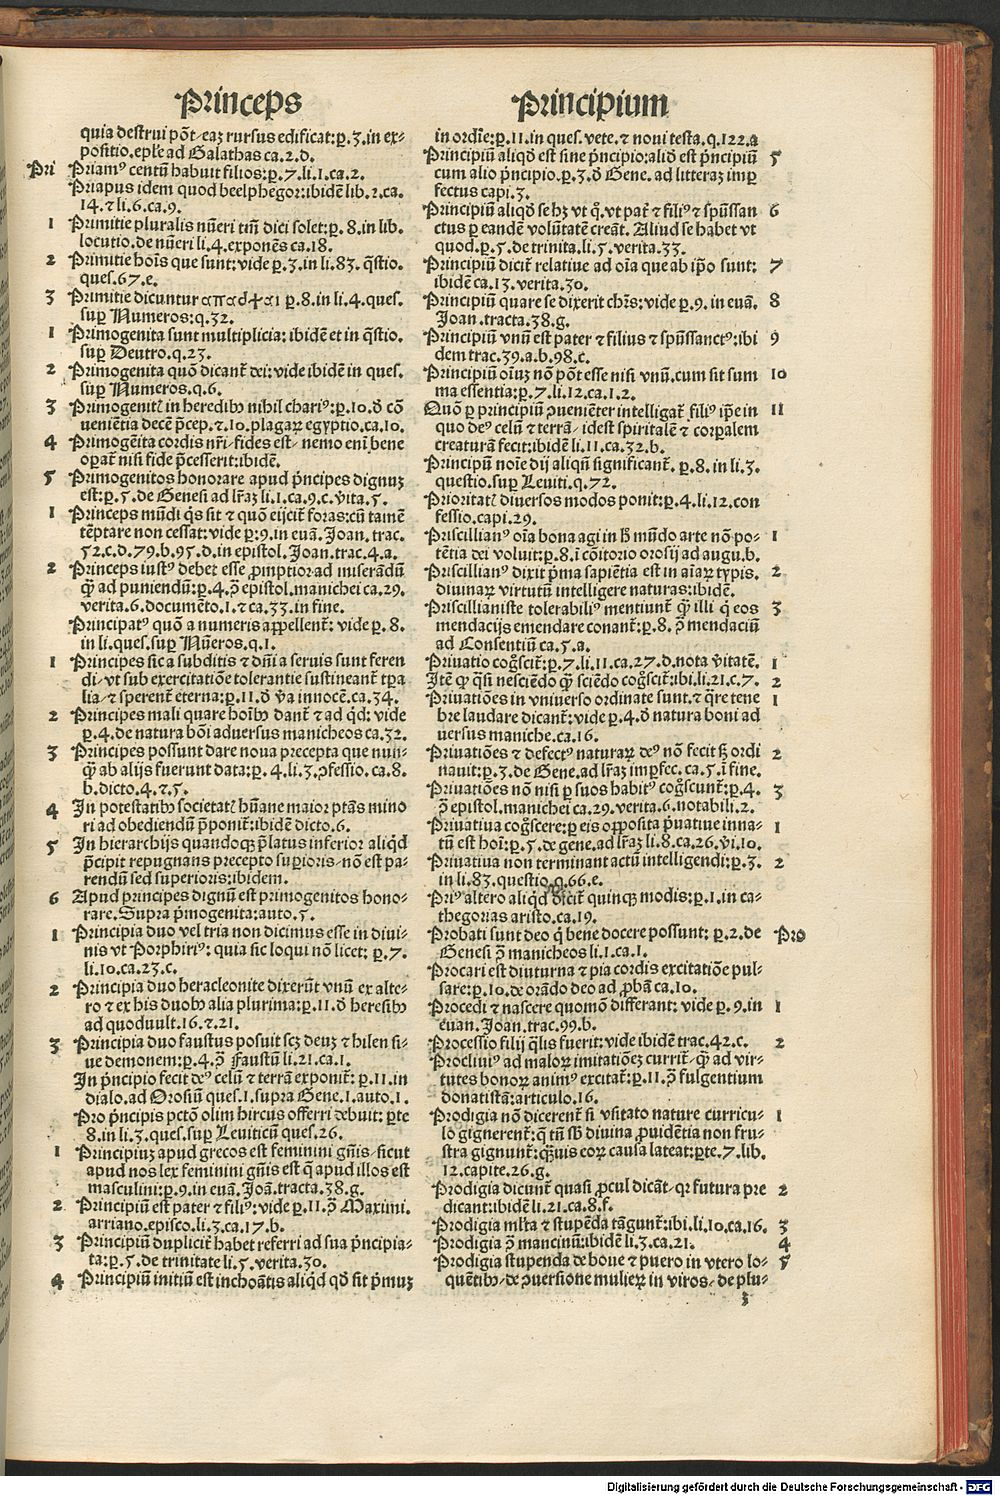 Princeps
quia destrui põt· eaʒ rursus edificat: p̲.3.in ex⸗
positio.ep̃le ad Galathas ca.2.d.
Pri Priamꝰ centũ habuit filios: p̲.7.li.1.ca.2.
Priapus idem quod beelphegor: ibidẽ lib.2.ca.
14.⁊ li.6.ca.9.
1 Primitie pluralis nũeri tm̃ dici solet: p̲.8.in lib.
locutio.de nũeri li.4.exponẽs ca.18.
2 Primitie hoĩs que sunt: vide p̲.3.in li.83.q̃stio.
ques.67.e.
3 Primitie dicuntur p̲.8.in li.4.ques.
sup̲ Numeros: q.32.
1 Primogenita sunt multiplicia: ibidẽ et in q̃stio.
sup̲ Deutro.q.23.
2 Primogenita quõ dicant̃ dei: vide ibidẽ in ques.
sup̲ Numeros.q.6.
3 Primogenitꝭ in heredibꝰ nihil chariꝰ: p̲.10.d̃ cõ
ueniẽtia decẽ p̃cep.⁊.10.plagaꝝ egyptio.ca.10.
4 Primogẽita cordis nr̃i· fides est⸗ nemo eni bene
op̲at̃ nisi fide p̃cesserit: ibidẽ.
5 Primogenitos honorare apud p̃ncipes dignuʒ
est: p̲.5.de Genesi ad lr̃aʒ li.1.ca.9.c.v̾ita.5.
1 Princeps mũdi q̃s sit ⁊ quõ eijcit̃ foras: cũ tamẽ
tẽptare non cessat: vide p̲:9.in euã.Joan.trac.
52.c.d.79.b.95.d.in epistol.Joan.trac.4.a.
2 Princeps iustꝰ debet esse ꝓmptior ad miserãdũ
q̃ȝ ad puniendũ: p̲.4.ↄ̃ epistol.manichei ca.29.
verita.6.documẽto.1.⁊ ca.33.in fine.
Principatꝰ quõ a numeris appellent̃: vide p̲.8.
in li.ques.sup̲ Nũeros.q.1.
1 Principes sic a subditis ⁊ dñi a seruis sunt feren
di⸗ vt sub exercitatiõe tolerantie sustineant̃ tp̃a
lia⸗ ⁊ sperent̃ eterna: p̲.11.d̃ v̾a innocẽ.ca.34.
2 Principes mali quare hoĩbꝰ dant̃ ⁊ ad q̃d: vide
p̲.4.de natura bõi aduersus manicheos ca.32.
3 Principes possunt dare noua precepta que nun⸗
q̃ȝ ab alijs fuerunt data: p̲.4.li.3.ↄfessio.ca.8.
b.dicto.4.⁊.5.
4 In potestatibꝰ societatꝭ hũane maior ptãs mino
ri ad obediendũ p̃ponit̃: ibidẽ dicto.6.
5 In hierarchijs quandoqꝫ p̃latus inferior aliq̃d
p̃cipit repugnans precepto sup̲ioris⸗ nõ est pa⸗
rendũ sed superioris: ibidem.
6 Apud principes dignũ est primogenitos hono⸗
rare.Supra p̃mogenita: auto.5.
1 Principia duo vel tria non dicimus esse in diui⸗
nis vt Porphiriꝰ: quia sic loqui nõ licet: p̲.7.
li.10.ca.23.c.
2 Principia duo heracleonite dixerũt vnũ ex alte⸗
ro ⁊ ex his duobꝰ alia plurima: p̲.11.d̃ heresibꝰ
ad quoduult.16.⁊.21.
3 Principia duo faustus posuit scʒ deuʒ ⁊ hilen si⸗
ue demonem: p̲.4.ↄ̃ Faustũ li.21.ca.1.
In p̃ncipio fecit deꝰ celũ ⁊ terrã exponit̃: p̲.11.in
dialo.ad Orosium ques.1.supra Gene.1.auto.1.
Pro p̃ncipis pctõ olim hircus offerri debuit: p̲te
8.in li.3.ques.sup̲ Leuiticũ ques.26.
1 Principiuʒ apud grecos est feminini gñis⸗ sicut
apud nos lex feminini gñis est q̃ apud illos est
masculini: p̲.9.in euã.Joã.tracta.38.g.
2 Principiũ est pater ⁊ filiꝰ: vide p̲.11.ↄ̃ Maximi.
arriano.episco.li.3.ca.17.b.
3 Principiũ duplicit̃ habet referri ad sua p̃ncipia⸗
ta: p̲.5.de trinitate li.5.verita.30.
4 Principiũ initiũ est inchoãtis aliq̃d qd̃ sit p̃muʒ
Principium
in ordĩe: p̲.11.in ques.vete.⁊ noui testa.q.122.a
Principiũ aliqd̃ est sine p̃ncipio: aliđ est p̃ncipiũ 5
cum alio p̃ncipio.p̲.3.d̃ Gene.ad litteraʒ imp̲
fectus capi.3.
Principiũ aliqd̃ se hʒ vt q̃.vt pat̃ ⁊ filiꝰ ⁊ spũssan 6
ctus p̲ eandẽ volũtatẽ creãt.Aliud se habet vt
quod.p̲.5.de trinita.li.5.verita.33.
Principiũ dicit̃ relatiue ad oĩa que ab ip̃o sunt: 7
ibidẽ ca.13.verita.30.
Principiũ quare se dixerit chr̃s: vide p̲.9.in euã. 8
Joan.tracta.38.g.
Principiũ vnũ est pater ⁊ filius ⁊ spũssanctꝰ: ibi 9
dem trac.39.a.b.98.c.
Principiũ oĩuʒ nõ põt esse nisi vnũ.cum sit sum 10
ma essentia: p̲.7.li.12.ca.1.2.
Quõ p̲ principiũ ↄueniẽter intelligat̃ filiꝰ ip̃e in 11
quo deꝰ celũ ⁊ terrã⸗ idest spiritalẽ ⁊ corp̲alem
creaturã fecit: ibidẽ li.11.ca.32.b.
Principũ noĩe dij aliqñ significant̃.p̲.8.in li.3.
questio.sup̲ Leuiti.q.72.
Prioritatꝭ diuersos modos ponit: p̲.4.li.12.con
fessio.capi.29.
Priscillianꝰ oĩa bona agi in h̃ mũdo arte nõ po⸗ 1
tẽtia dei voluit: p̲.8.ĩ cõitorio orosij ad augu.b.
Priscillianꝰ dixit p̃ma sapiẽtia est in aĩaꝝ typis. 2
diuinaꝝ virtutũ intelligere naturas: ibidẽ.
Priscillianiste tolerabiliꝰ mentiunt̃ q̃ȝ illi q̃ eos 3
mendacijs emendare conant̃: p̲.8.ↄ̃ mendaciũ
ad Consentiũ ca.5.a.
Priuatio cog̃scit̃: p̲.7.li.11.ca.27.d.nota v̾itatẽ. 1
Itẽ ꝙ q̃si nesciẽdo q̃ȝ sciẽdo cog̃scit̃: ibi.li.21.c.7. 2
Priuatiões in vniuerso ordinate sunt.⁊ q̃re tene 1
bre laudare dicant̃: vide p̲.4.d̃ natura boni ad
uersus maniche.ca.16.
Priuatiões ⁊ defectꝰ naturaꝝ deꝰ nõ fecit sʒ ordi 2
nauit: p̲.3.de Gene.ad lr̃aʒ imp̲fec.ca.5.ĩ fine.
Priuatiões nõ nisi p̲ suos habitꝰ cog̃scunt̃: p̲.4. 3
ↄ̃ epistol.manichei ca.29.verita.6.notabili.2.
Priuatiua cog̃scere: p̲ eis opposita p̃uatiue inna⸗ 1
tũ est hoĩ: p̲.5.de gene.ad lr̃aʒ li.8.ca.26.vi.10.
Priuatiua non terminant actũ intelligendi: p̲.3. 2
in li.83.questio.q.66.e.
Priꝰ altero aliq̃d dicit̃ quinqꝫ modis: p̲.1.in ca⸗
thegorias aristo.ca.19.
Probati sunt deo q̃ bene docere possunt: p̲.2.de Pro
Genesi ↄ̃ manicheos li.1.ca.1.
Procari est diuturna ⁊ pia cordis excitatiõe pul⸗
sare: p̲.10.de orãdo deo ad ꝓbã ca.10.
Procedi ⁊ nascere quomõ differant: vide p̲.9.in 1
euan.Joan.trac.99.b.
Processio filij q̃lis fuerit: vide ibidẽ trac.42.c. 2
Procliuiꝰ ad maloꝝ imitatiõeʒ currit̃⸗ q̃ȝ ad vir⸗
tutes bonoꝝ animꝰ excitat̃: p̲.11.ↄ̃ fulgentium
donatistã: articulo.16.
Prodigia nõ dicerent̃ si vsitato nature curricu⸗ 1
lo gignerent̃: q̃ tñ sb̃ diuina ꝓuidẽtia non fru⸗
stra gignunt̃: q̃ȝuis eoꝝ causa lateat: p̲te.7.lib.
12.capite.26.g.
Prodigia dicunt̃ quasi ꝓcul dicãt⸗ qꝛ futura pre 2
dicant: ibidẽ li.21.ca.8.f.
Prodigia ml̃ta ⁊ stupẽda tãgunt̃: ibi.li.10.ca.16. 3
Prodigia ↄ̃ mancinũ: ibidẽ li.3.ca.21. 4
Prodigia stupenda de boue ⁊ puero in vtero lo⸗ 5
quẽtibꝰ⸗ de ↄuersione mulieꝝ in viros⸗ de plu⸗
3
Digitalisierung gefördert durch die Deutsche Forschungsgemeinschaft - DFG